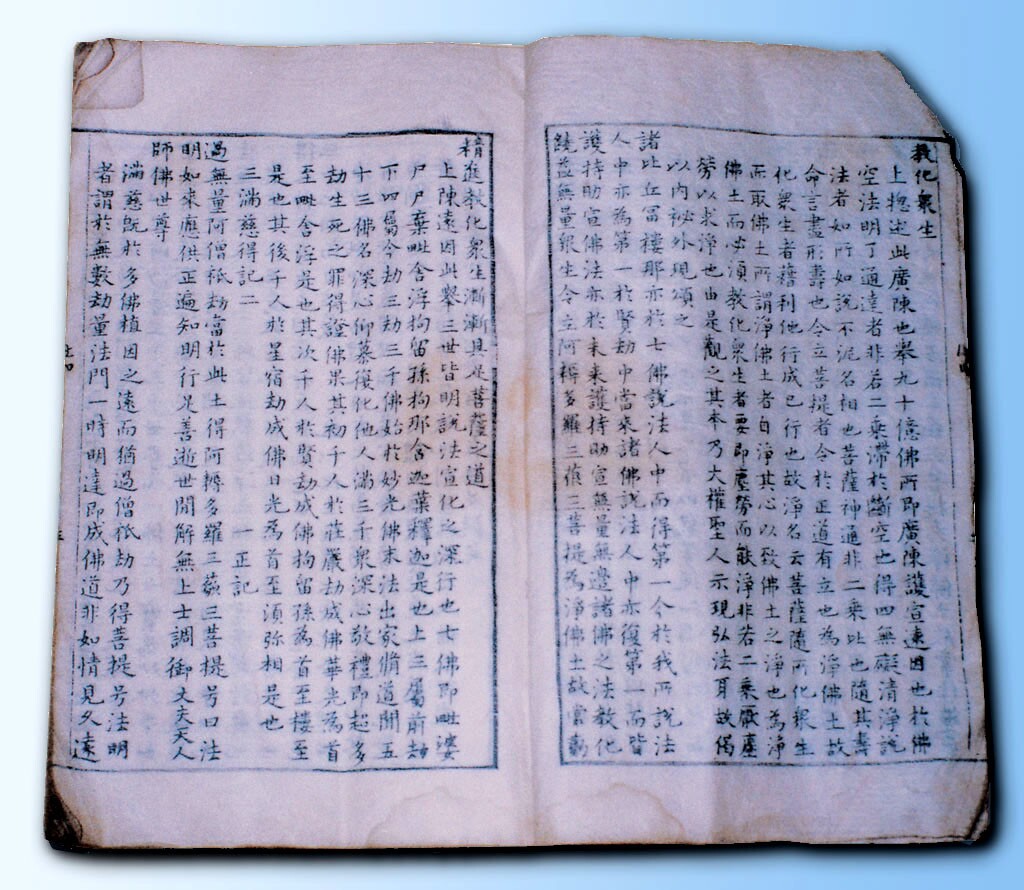 教化衆生
上摠定此廣陳也舉九十億佛所即廣陳護宣遠因也於佛
空法明了通達者非若二乘滯於斷空也得四無礙清淨說
法者如所如說不泥名相也菩薩神通非二乘比也隨其壽
命言盡形壽也令立菩提者令於正道有立也為淨佛土故
化衆生者藉利他行成已行也故淨名云菩薩隨所化衆生
而取佛土所謂淨佛土者自淨其心以致佛土之淨也為淨
佛土而必須教化衆生者要即塵勞而能淨非若二乘厭塵
勞以求淨也由是觀之其本乃大權聖人示現弘法耳故偈
以內祕外現頌之
諸比丘冨樓那亦於七佛說法人中而得第一今於我所說法
人中亦為第一於賢劫中當來諸佛說法人中亦復第一而皆
護持助宣佛法亦於未來護持助宣無量無邊諸佛之法教化
饒益無量衆生令立阿耨多羅三藐三菩提為淨佛土故常勤
精進教化衆生漸漸具足菩薩之道
上陳遠因此舉三世皆明說法宣化之深行也七佛即毗婆
尸尸棄毗舍浮拘留孫拘那舍迦葉釋迦是也上三屬前劫
下四屬今劫三劫三千佛始於妙光佛末法出家脩道聞五
十三佛名深心仰慕復化他人滿三千衆深心敬禮即超多
劫生死之罪得證佛果其初千人於莊嚴劫成佛華光為首
至毗舍浮是也其次千人於賢劫成佛拘留孫為首至樓至
是也其後千人於星宿劫成佛日光為首至須弥相是也
三滿慈得記二 一正記
過無量阿僧祇劫當於此土得阿耨多羅三藐三菩提号曰法
明如來應供正遍知明行足善逝世間解無上士調御丈夫天人
師佛世尊
滿慈旣於多佛植因之遠而猶過僧祇劫乃得菩提号法明
者謂於無數劫量法門一時明達即成佛道非如情見久遠